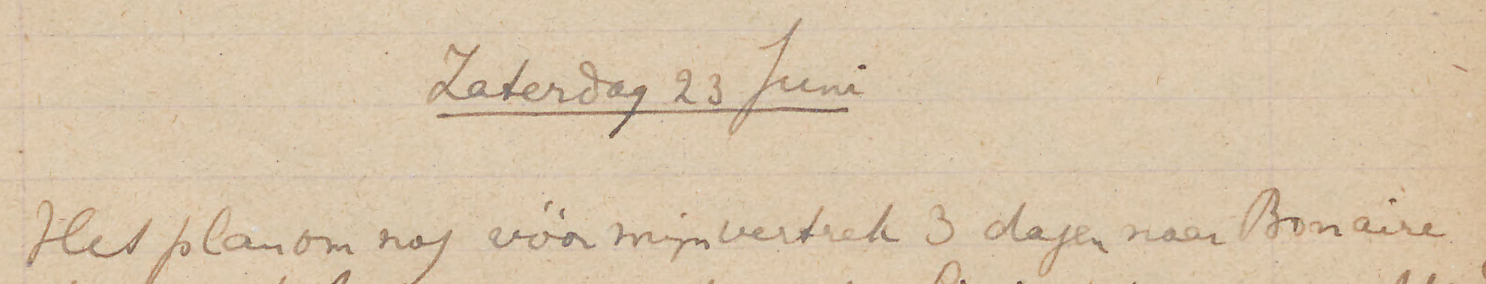 Zaterdag 23 Juni
Het plan om nog vóór mijn vertrek 3 dagen naar Bonaire